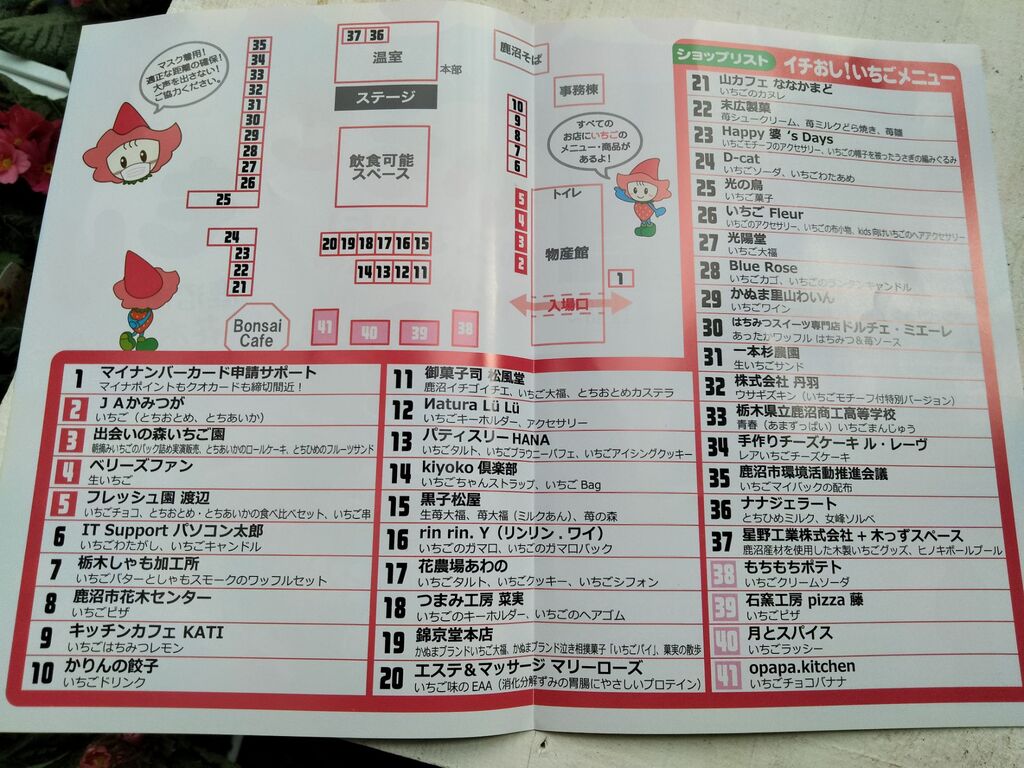 マスク着用！
適正な距離の確保！
大声を出さない！
ご協力ください。
35
34
33
32
31
30
29
28
27
26
25
24
23
22
21
37 36
温室
本部
ステージ
飲食可能
スペース
20 19 18 17 16 15
14 13 12 11
Bonsai
Cafe
41
40
39
38
鹿沼そば
事務棟
10
9
8
7
6
5
4
3
2
すべての
お店にいちごの
メニュー・商品が
あるよ！
トイレ
物産館
1
入場口
ショップリスト
イチおし！いちごメニュー
1 マイナンバーカード申請サポート
マイナポイントもクオカードも締切間近！
2 JAかみつが
いちご（とちおとめ、とちあいか）
3 出会いの森いちご園
朝摘みいちごのパック詰め実演販売、とちあいかのロールケーキ、とちひめのフルーツサンド
4 ベリーズファン
生いちご
5 フレッシュ園 渡辺
いちごチョコ、とちおとめ・とちあいかの食べ比べセット、いちご串
6 IT Support パソコン太郎
いちごわたがし、いちごキャンドル
7 栃木しゃも加工所
いちごバターとしゃもスモークのワッフルセット
8 鹿沼市花木センター
いちごピザ
9 キッチンカフェ KATI
いちごはちみつレモン
10 かりんの餃子
いちごドリンク
11 御菓子司 松風堂
鹿沼イチゴイチエ、いちご大福、とちおとめカステラ
12 Иatura Lü Lü
いちごキーホルダー、アクセサリー
13 パティスリー HANA
いちごタルト、いちごブラウニーパフェ、いちごアイシングクッキー
14 kiyoko 倶楽部
いちごちゃんストラップ、いちご Bag
15 黒子松屋
生苺大福、苺大福（ミルクあん）、苺の森
16 rin rin. Y（リンリン . ワイ）
いちごのガマロ、いちごのガマロバック
17 花農場あわの
いちごタルト、いちごクッキー、いちごシフォン
18 つまみ工房 菜実
いちごのキーホルダー、いちごのヘアゴム
19 錦京堂本店
かぬまブランドいちご大福、かぬまブランド泣き相撲菓子「いちごパイ」、菓実の散歩
20 エステ＆マッサージ マリーローズ
いちご味の EAA（消化分解ずみの胃腸にやさしいプロテイン）
21 山カフェ ななかまど
いちごのカヌレ
22 末広製菓
苺シュークリーム、苺ミルクどら焼き、苺雛
23 Happy 婆 's Days
いちごモチーフのアクセサリー、いちごの帽子を被ったうさぎの編みぐるみ
24 D-cat
いちごソーダ、いちごわたあめ
25 光の鳥
いちご菓子
26 いちご Fleur
いちごのアクセサリー、いちごの布小物、kids 向けいちごのヘアアクセサリー
27 光陽堂
いちご大福
28 Blue Rose
いちごカゴ、いちごのランタンキャンドル
29 かぬま里山わいん
いちごワイン
30 はちみつスイーツ専門店ドルチェ・ミエーレ
あったかワッフル はちみつ＆苺ソース
31 一本杉農園
生いちごサンド
32 株式会社 丹羽
ウサギズキン（いちごモチーフ付特別バージョン）
33 栃木県立鹿沼商工高等学校
青春（あまずっぱい）いちごまんじゅう
34 手作りチーズケーキ ル・レーヴ
レアいちごチーズケーキ
35 鹿沼市環境活動推進会議
いちごマイバックの配布
36 ナナジェラート
とちひめミルク、女峰ソルベ
37 星野工業株式会社＋木っずスペース
鹿沼産材を使用した木製いちごグッズ、ヒノキボールプール
38 もちもちポテト
いちごクリームソーダ
39 石窯工房 pizza 藤
いちごピザ
40 月とスパイス
いちごラッシー
41 opapa.kitchen
いちごチョコバナナ